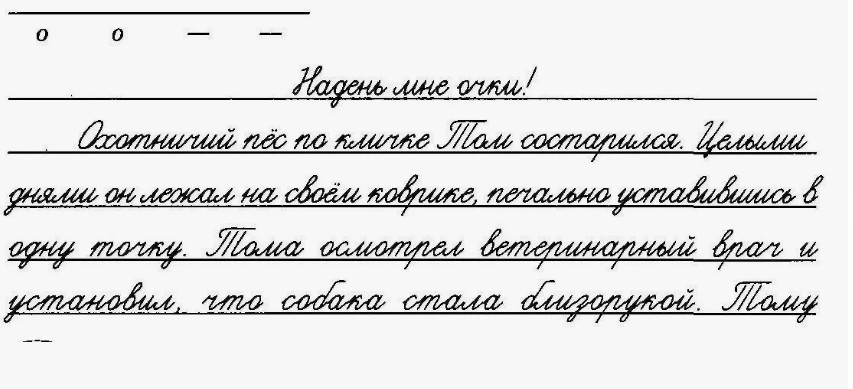 о о — —
Надень мне очки!
Охотничий пёс по кличке Том состарился. Целыми
днями он лежал на своём коврике, печально уставившись в
одну точку. Тома осмотрел ветеринарный врач и
установил, что собака стала близорукой. Тому